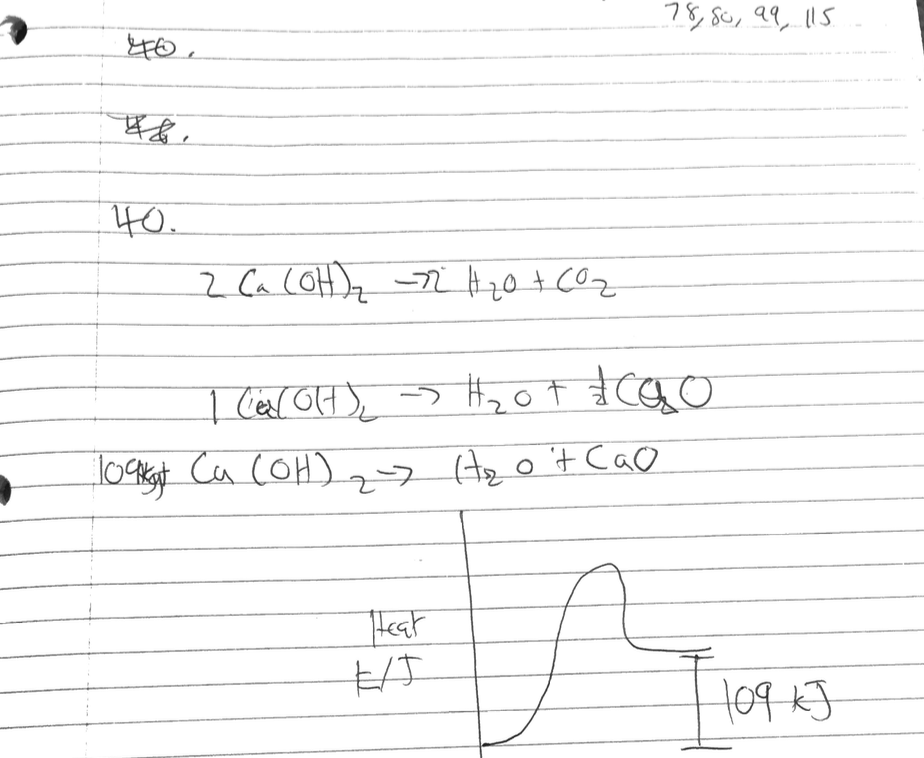 78, 80, 99, 115
40.
48.
40.
2 Ca(OH)₂ → 2 H₂O + CO₂
1 Ca(OH)₂ → H₂O + ½ CaO
109 Ca(OH)₂ → H₂O + CaO
Heat
E/J
109 kJ